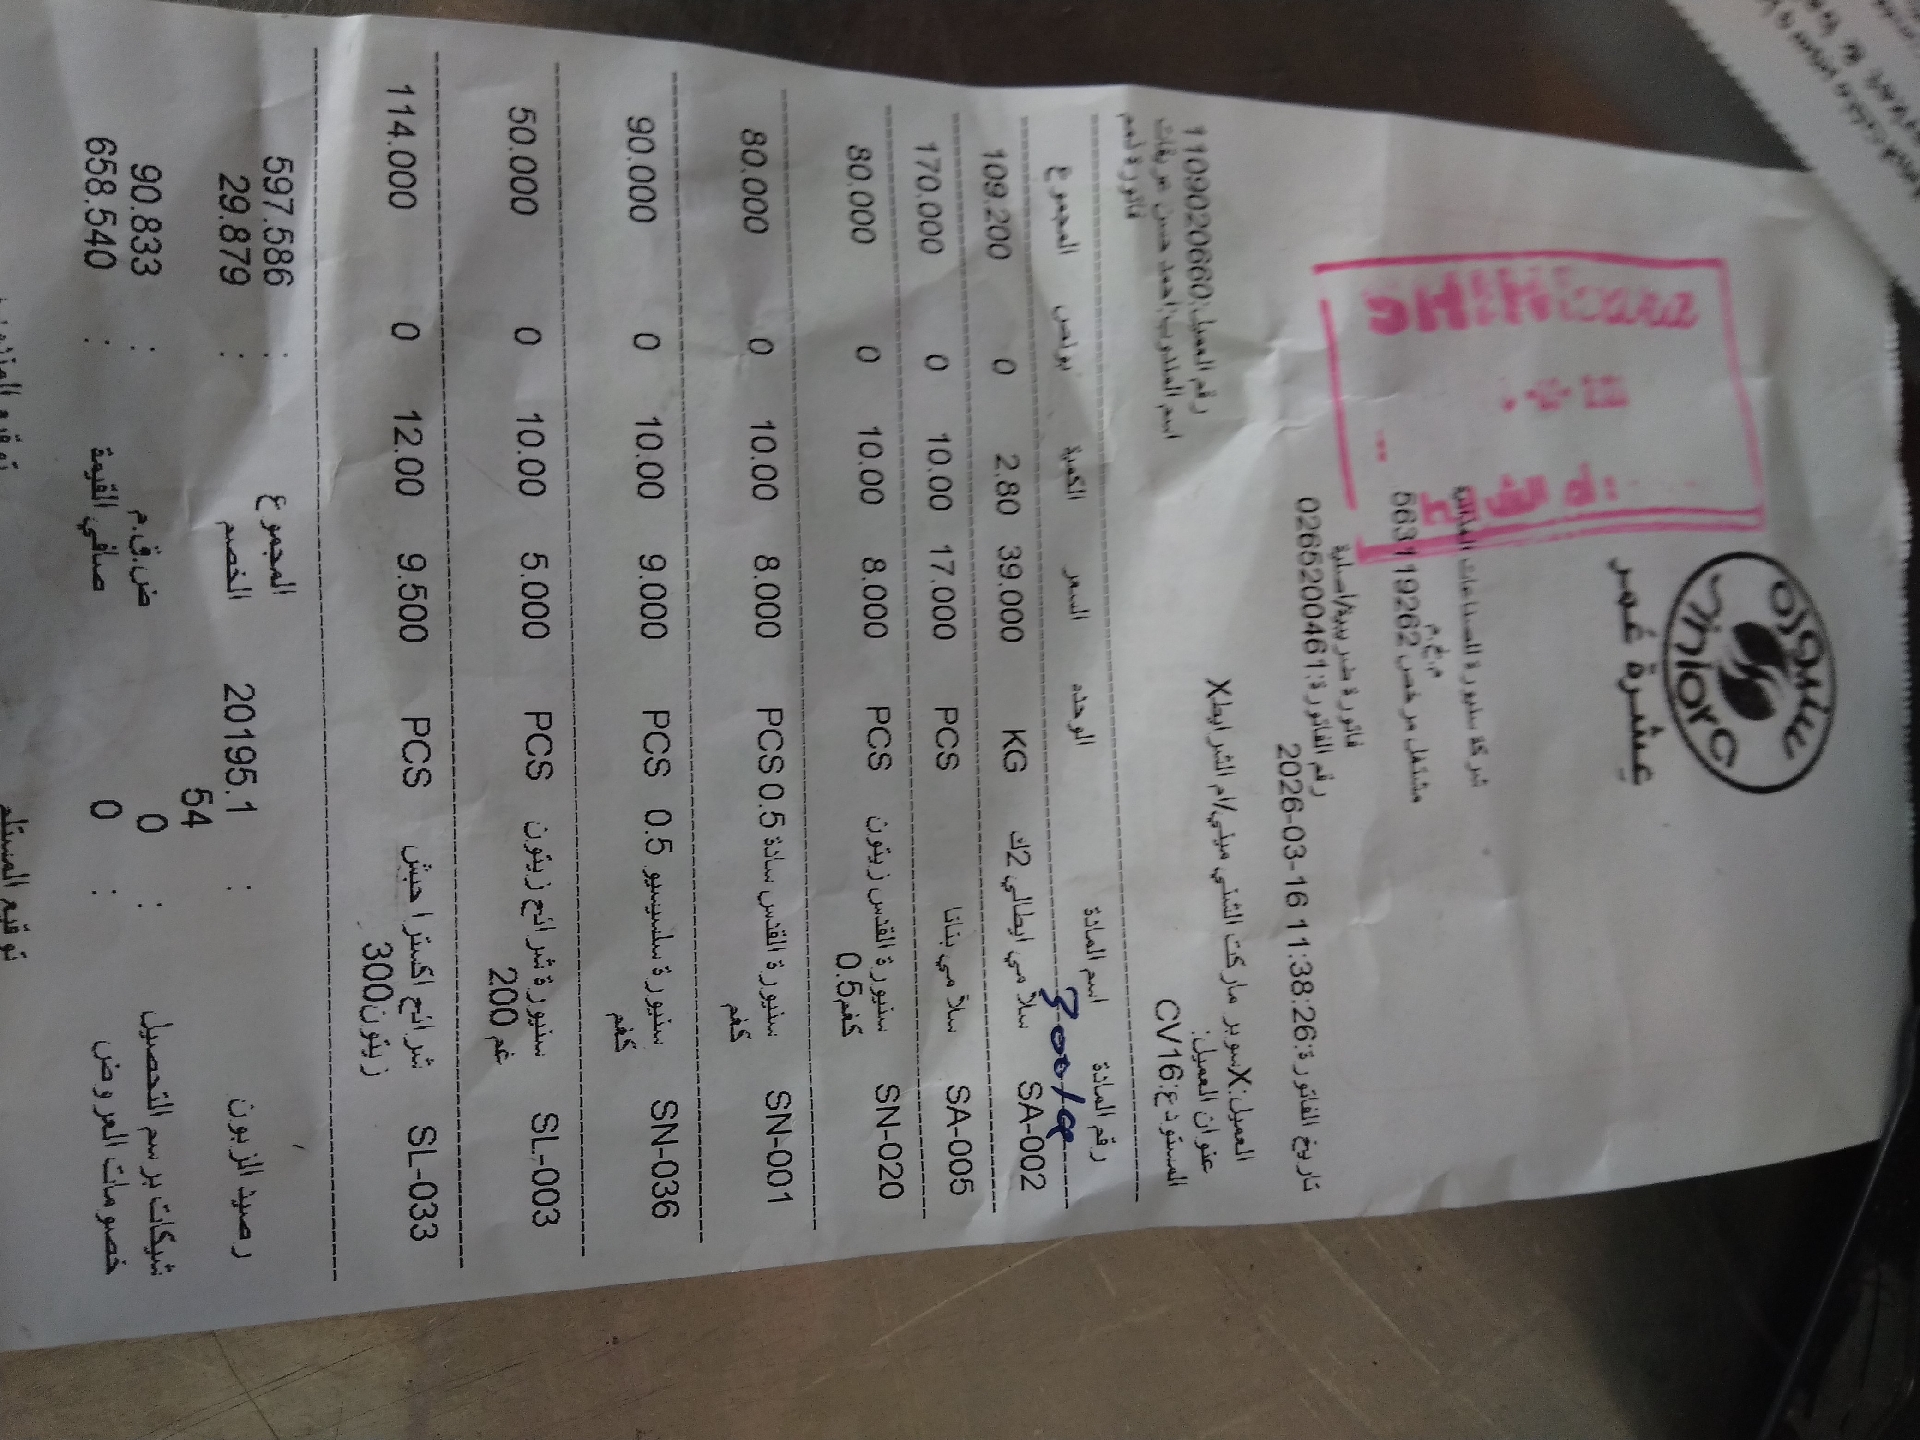 سنيورة
Siniora
عِشرة عُمر
شركة سنيورة للصناعات الغذائية
م.خ.م
مشتغل مرخص 563119262
فاتورة ضريبية/اصلية
رقم الفاتورة:0265200461
تاريخ الفاتورة:2026-03-16 11:38:26
العميل:Xسوبر ماركت الشني ميني/ام الشرايطX
عنوان العميل:
رقم العميل:1109020660
المستودع:CV16
اسم المندوب:احمد حسن عريقات
فاتورة لعم
رقم المادة اسم المادة الوحده السعر الكمية بونص المجموع
SA-002 سلامي ايطالي 2ك KG 39.000 2.80 0 109.200
SA-005 سلامي بتاتا PCS 17.000 10.00 0 170.000
SN-020 سنيورة القدس زيتون PCS 8.000 10.00 0 80.000
0.5كغم
SN-001 سنيورة القدس سادة 0.5 PCS 8.000 10.00 0 80.000
كغم
SN-036 سنيورة سلسيسيو 0.5 PCS 9.000 10.00 0 90.000
كغم
SL-003 سنيورة شرائح زيتون PCS 5.000 10.00 0 50.000
200 غم
SL-033 شرائح اكسترا حبش PCS 9.500 12.00 0 114.000
زيتون300
المجموع : 597.586
رصيد الزبون : 20195.1 الخصم : 29.879
54
شيكات برسم التحصيل : 0 ض.ق.م : 90.833
خصومات العروض : 0 صافي القيمة : 658.540
توقيع المستلم توقيع المندوب